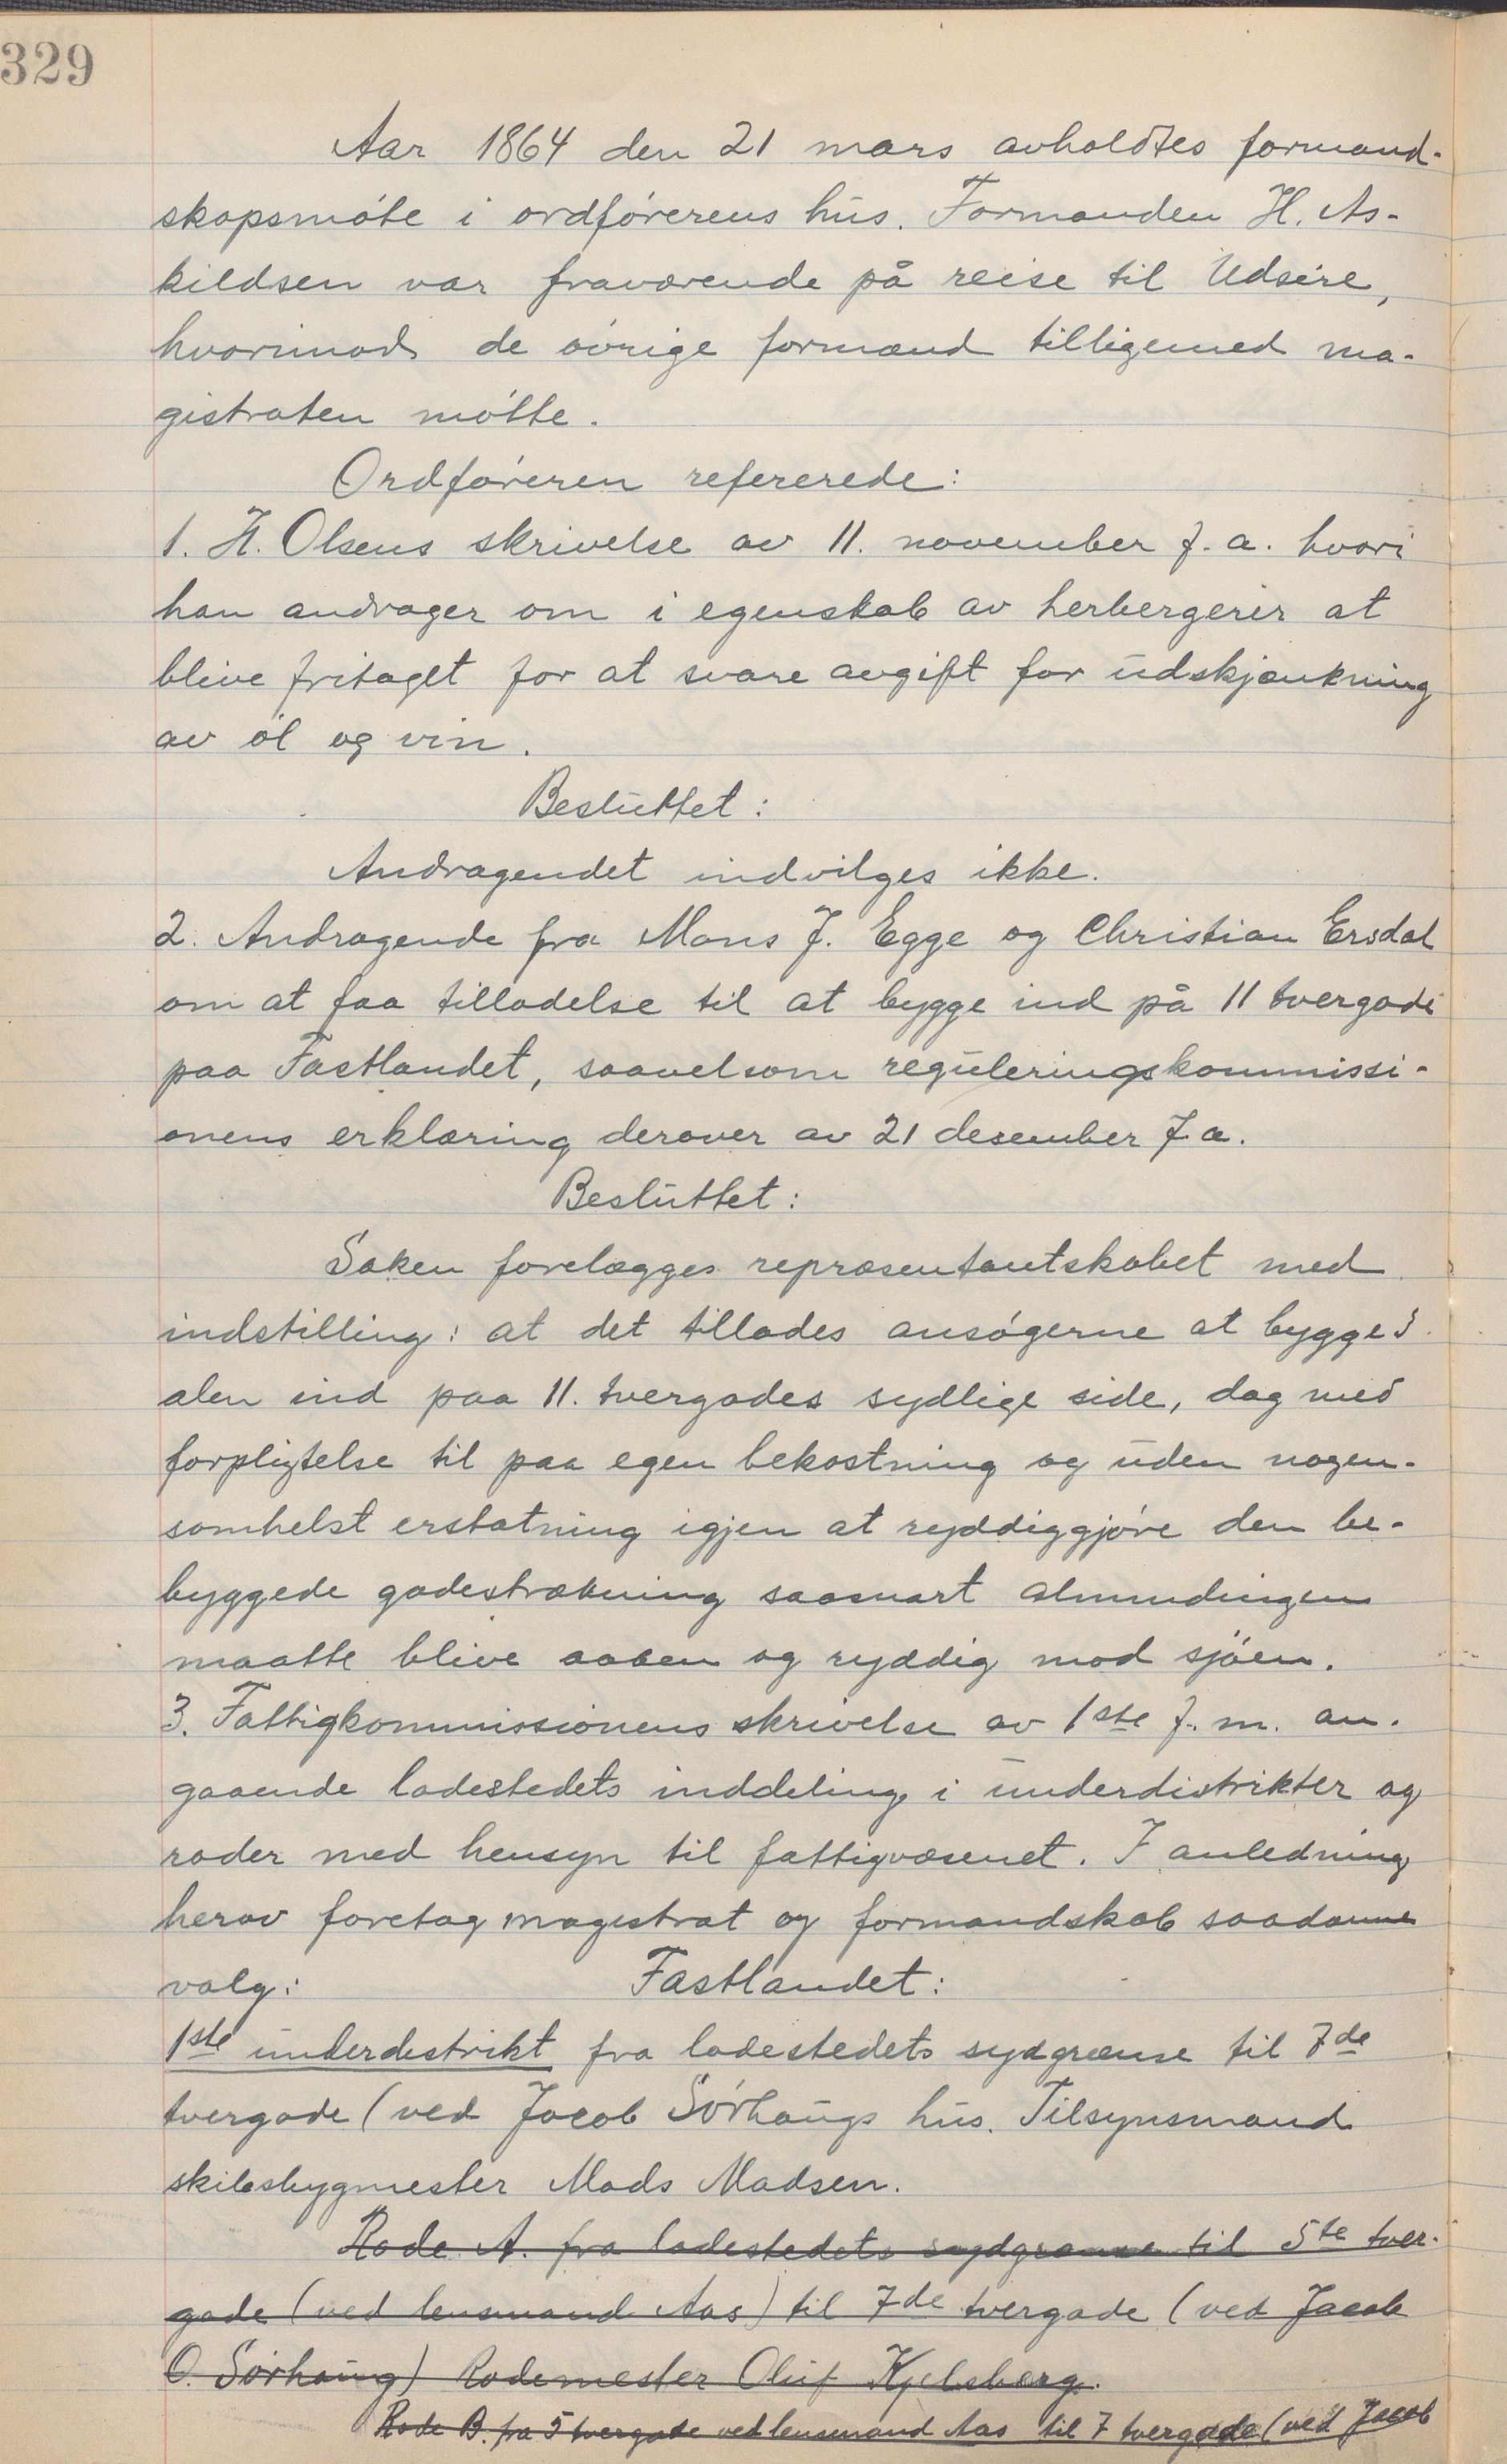 329
Aar 1864 den 21 mars avholdtes formand-
skapsmøte i ordførerens hus. Formanden H. As-
kildsen var fraværende på reise til Udsire,
hvorimod de øvrige formænd tilligemed ma-
gistraten møtte.
Ordføreren refererede:
1. H. Olsens skrivelse av 11. november f. a. hvori
han andrager om i egenskab av herbergerer at
blive fritaget for at svare avgift for udskjænkning
av øl og vin.
Besluttet:
Andragendet indvilges ikke.
2. Andragende fra Mons J. Egge og Christian Ersdal
om at faa tilladelse til at bygge ind på 11 tvergade
paa Fastlandet, saavelsom reguleringskommissi-
onens erklæring derover av 21 desember f. a.
Besluttet:
Saken forelægges repræsentantskabet med
indstilling: at det tillades ansøgerne at bygge 3
alen ind paa 11. tvergades sydlige side, dog med
forpligtelse til paa egen bekostning og uden nogen-
somhelst erstatning igjen at ryddiggjøre den be-
byggede gadestrækning saasnart almindingen
maatte blive aaben og ryddig mod sjøen.
3. Fattigkommissionens skrivelse av 1ste f. m. an-
gaaende ladestedets inddeling i underdistrikter og
roder med hensyn til fattigvæsenet. I anledning
herav foretog magistrat og formandskab saadanne
valg: Fastlandet:
1ste underdestrikt fra ladestedets sydgrænse til 7de
tvergade (ved Jacob Sørhaugs hus. Tilsynsmand
skibsbygmester Mads Madsen.
Rode A. fra ladestedets sydgrænse til 5te tver-
gade (ved lensmand Aas) til 7de tvergade (ved Jacob
O. Sørhaug) Rodemester Oluf Kjelsberg.
Rode B. fra 5 tvergade ved lensmand Aas til 7 tvergade (ved Jacob